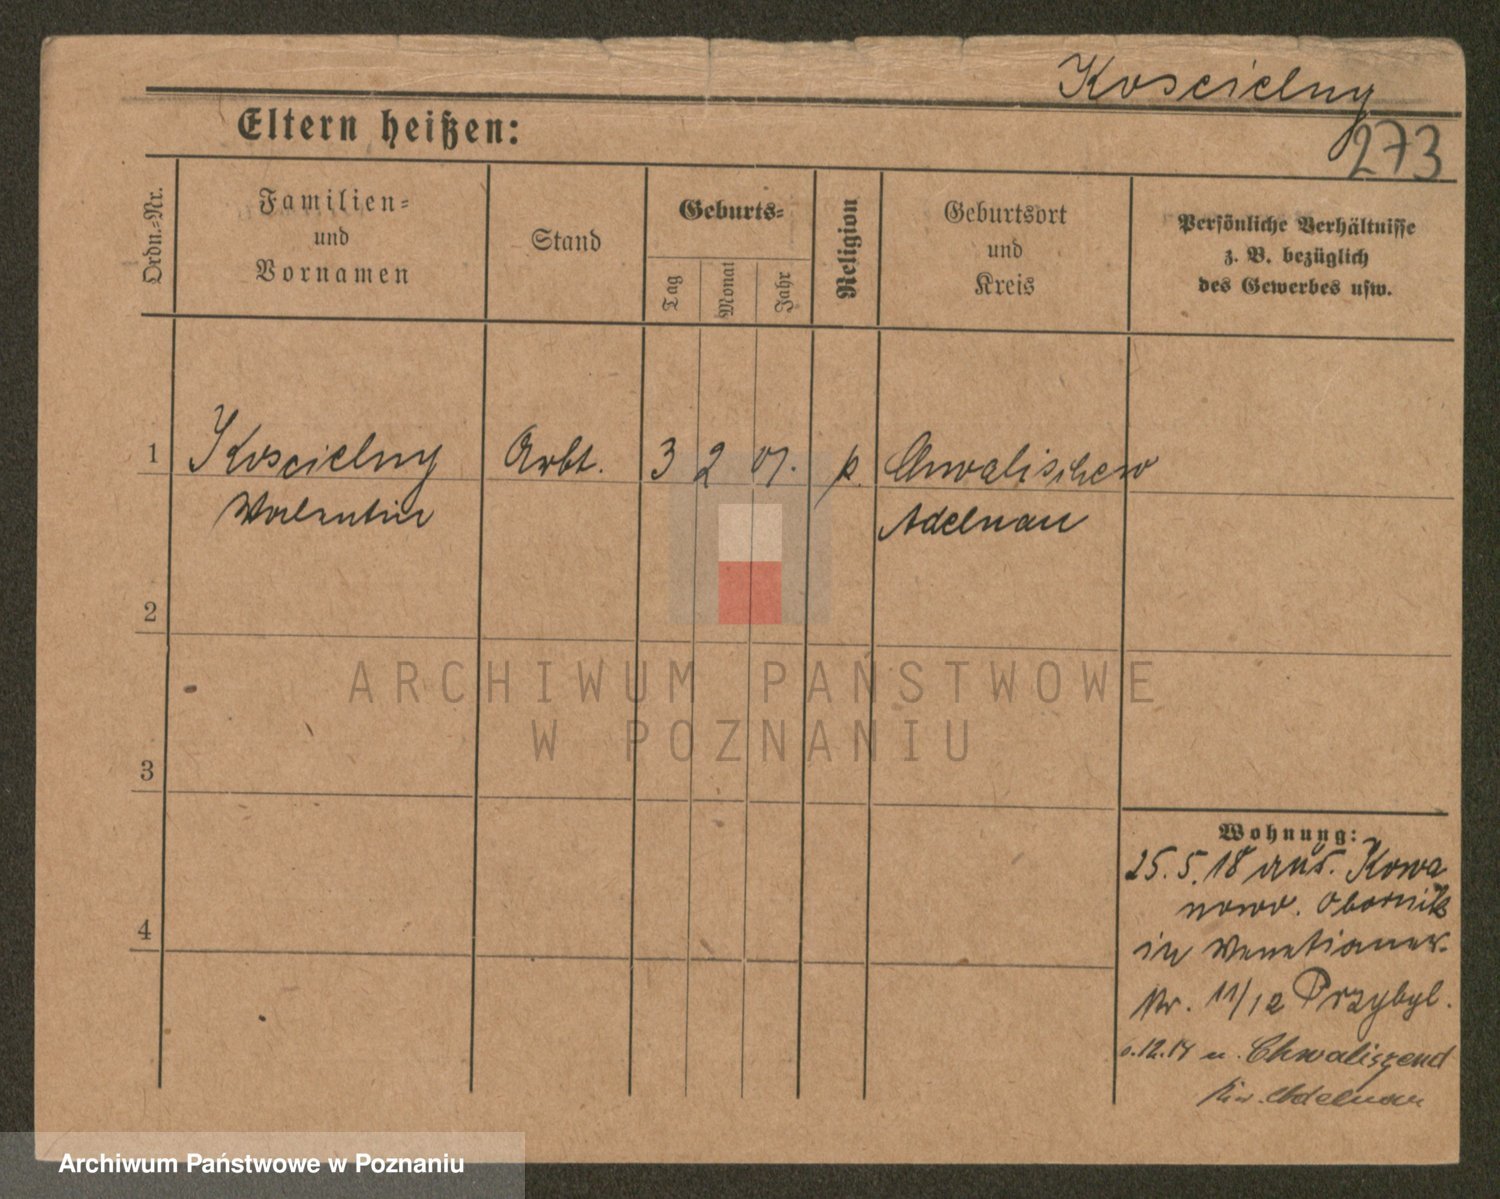 Koscielny
273
Eltern heißen:
Ordn.-Nr.
Familien-
und
Vornamen
Stand
Geburts-
Tag
Monat
Jahr
Religion
Geburtsort
und
Kreis
Persönliche Verhältnisse
z. B. bezüglich
des Gewerbes usw.
1 Koscielny Arbt. 3 2 01. k.
Valentin Adelnau
2
ARCHIWUM PAŃSTWOWE
W POZNANIU
3
Wohnung:
25.5.18 aus. Kowa
nowo. Obornik
in Venetianer.
Nr. 11/12 Przybyl.
4
.12.18 n. Chwaliszend
Adelnau
Archiwum Państwowe w Poznaniu